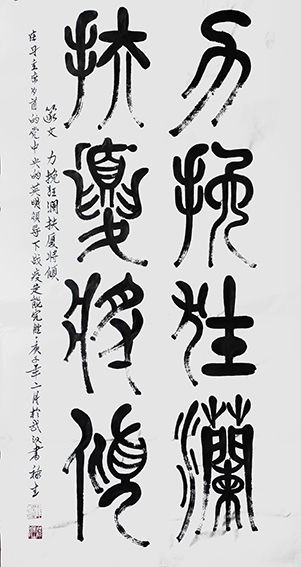 力挽狂瀾
扶廈將傾
篆文 力挽狂澜扶厦将倾
在习主席为首的党中央的英明领导下战疫定能完胜·庚子年二月於武汉书